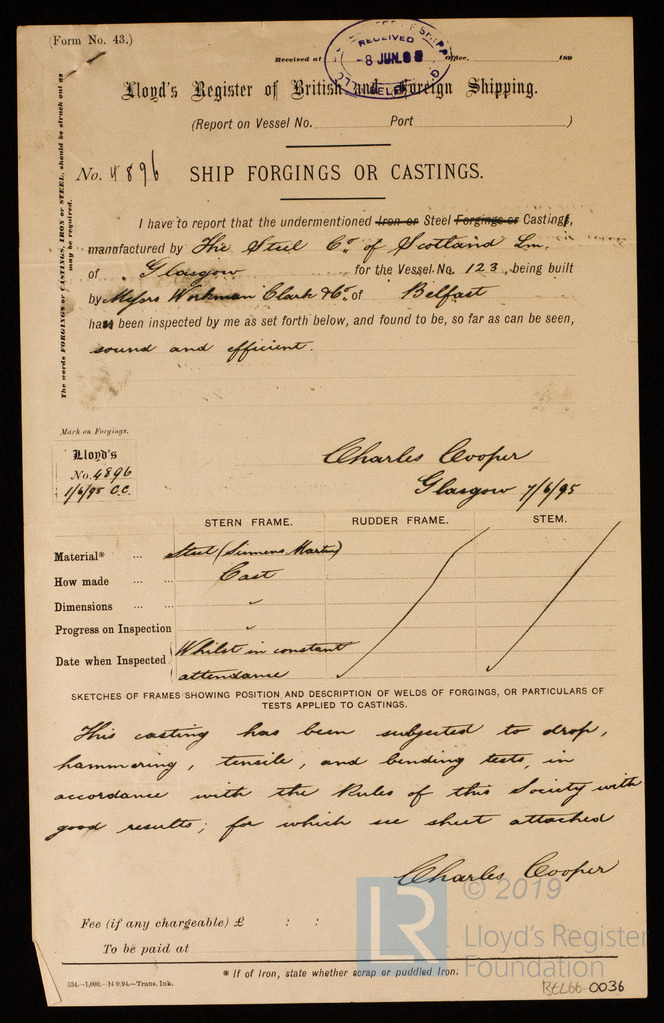 (Form No. 43.)
RECEIVED
-8 JUN.95
BELFAST
Received at Office, 189
Lloyd's Register of British and Foreign Shipping.
(Report on Vessel No. Port )
No. 4896 SHIP FORGINGS OR CASTINGS.
The words FORGINGS or CASTINGS, IRON or STEEL, should be struck out as
may be required.
I have to report that the undermentioned Iron or Steel Forgings or Castings,
manufactured by The Steel Co. of Scotland Lm.
of Glasgow for the Vessel No. 123, being built
by Messrs Workman Clark & Co. of Belfast
has been inspected by me as set forth below, and found to be, so far as can be seen,
sound and efficient.
Mark on Forgings.
Lloyd's
No. 4896
1/6/95 C.C.
Charles Cooper
Glasgow 7/6/95
STERN FRAME. RUDDER FRAME. STEM.
Material* ... Steel (Siemens Martin)
How made ... ... Cast
Dimensions ... ... "
Progress on Inspection "
Date when Inspected Whilst in constant
attendance
SKETCHES OF FRAMES SHOWING POSITION AND DESCRIPTION OF WELDS OF FORGINGS, OR PARTICULARS OF
TESTS APPLIED TO CASTINGS.
This casting has been subjected to drop,
hammering, tensile, and bending tests, in
accordance with the Rules of this Society with
good results; for which see sheet attached
Charles Cooper
Fee (if any chargeable) £ : :
To be paid at
* If of Iron, state whether scrap or puddled Iron.
534.—1,000.—14/9/94.—Trans. Ink.
LR
© 2019
Lloyd's Register
Foundation
BEL66-0036